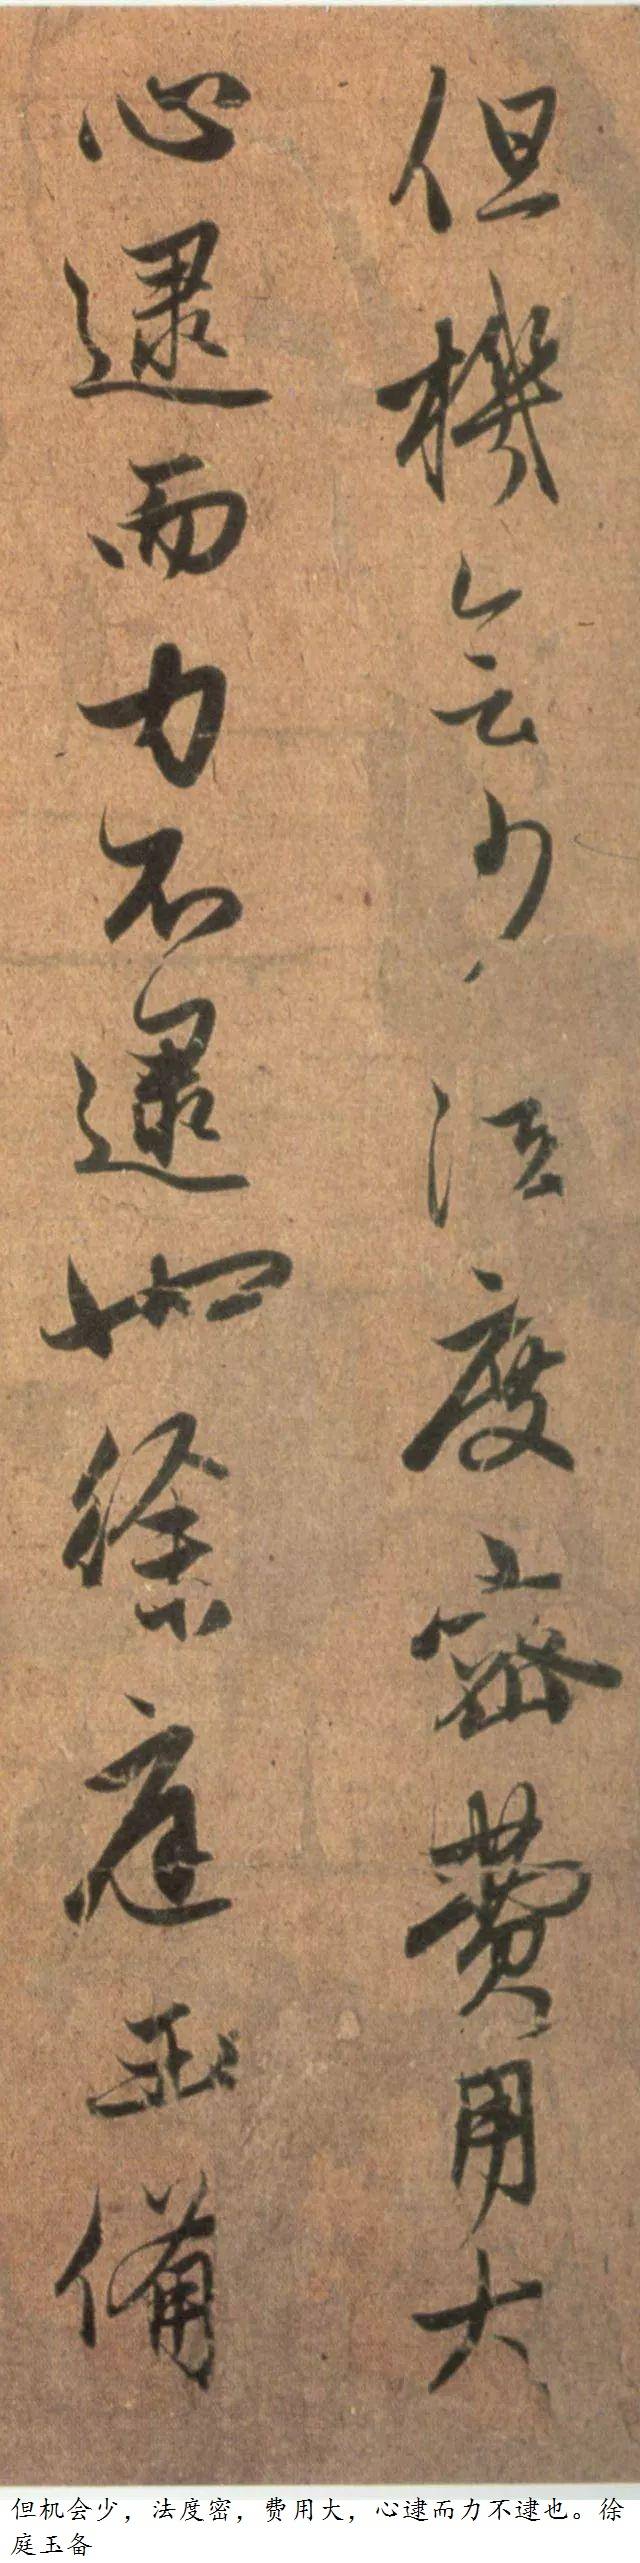 但機会少法度密費用大
心逮而力不逮也徐庭玉備
但机会少，法度密，费用大，心逮而力不逮也。徐
庭玉备